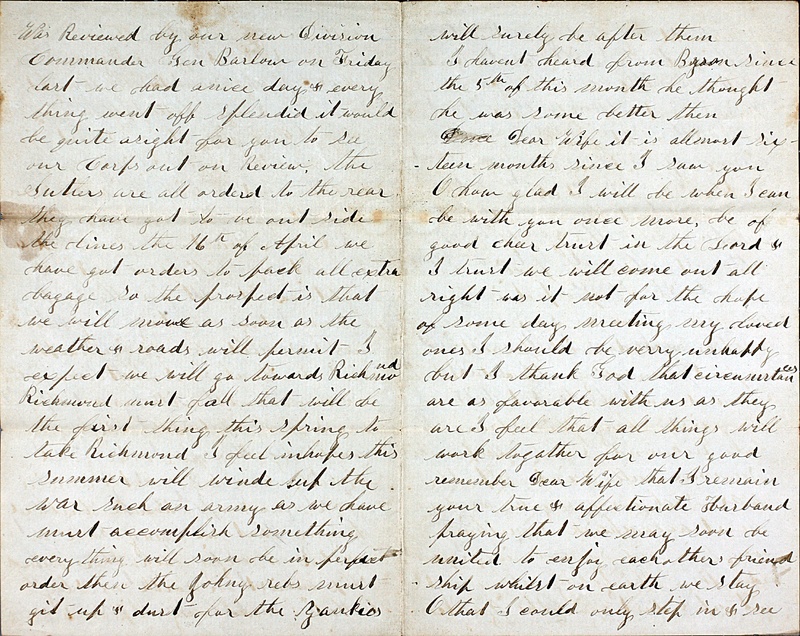 Was Reviewed by our new Division
Commander Gen Barlow on Friday
last we had a nice day & every
thing went off splendid it would
be quite asight for you to see
our Corps out on Review, the
Sutlers are all orderd to the rear
they have got to be out side
the lines the 16th of April we
have got orders to pack all extra
bagage so the prospect is that
we will move as soon as the
weather & roads will permit I
expect we will go towards Richmond
Richmond must fall that will be
the first thing this spring to
take Richmond I feel inhopes this
summer will winde up the
war such an army as we have
must accomplish something
every thing will soon be in perfect
order then the Johny rebs must
git up & dust for the Yankies
will surely be after them
I havent heard from Byron since
the 5th of this month he thought
he was some better then
Dear Wife it is allmost six-
teen months since I saw you
O how glad I will be when I can
be with you once more, be of
good cheer trust in the Lord &
I trust we will come out all
right was it not for the hope
of some day meeting my loved
ones I should be verry unhappy
but I thank God that circumstances
are as favorable with us as they
are I feel that all things will
work togather for our good
remember Dear Wife that I remain
your true & affectionate Husband
praying that we may soon be
united to enjoy eachothers friend
ship whilst on earth we stay
O that I could only step in & see